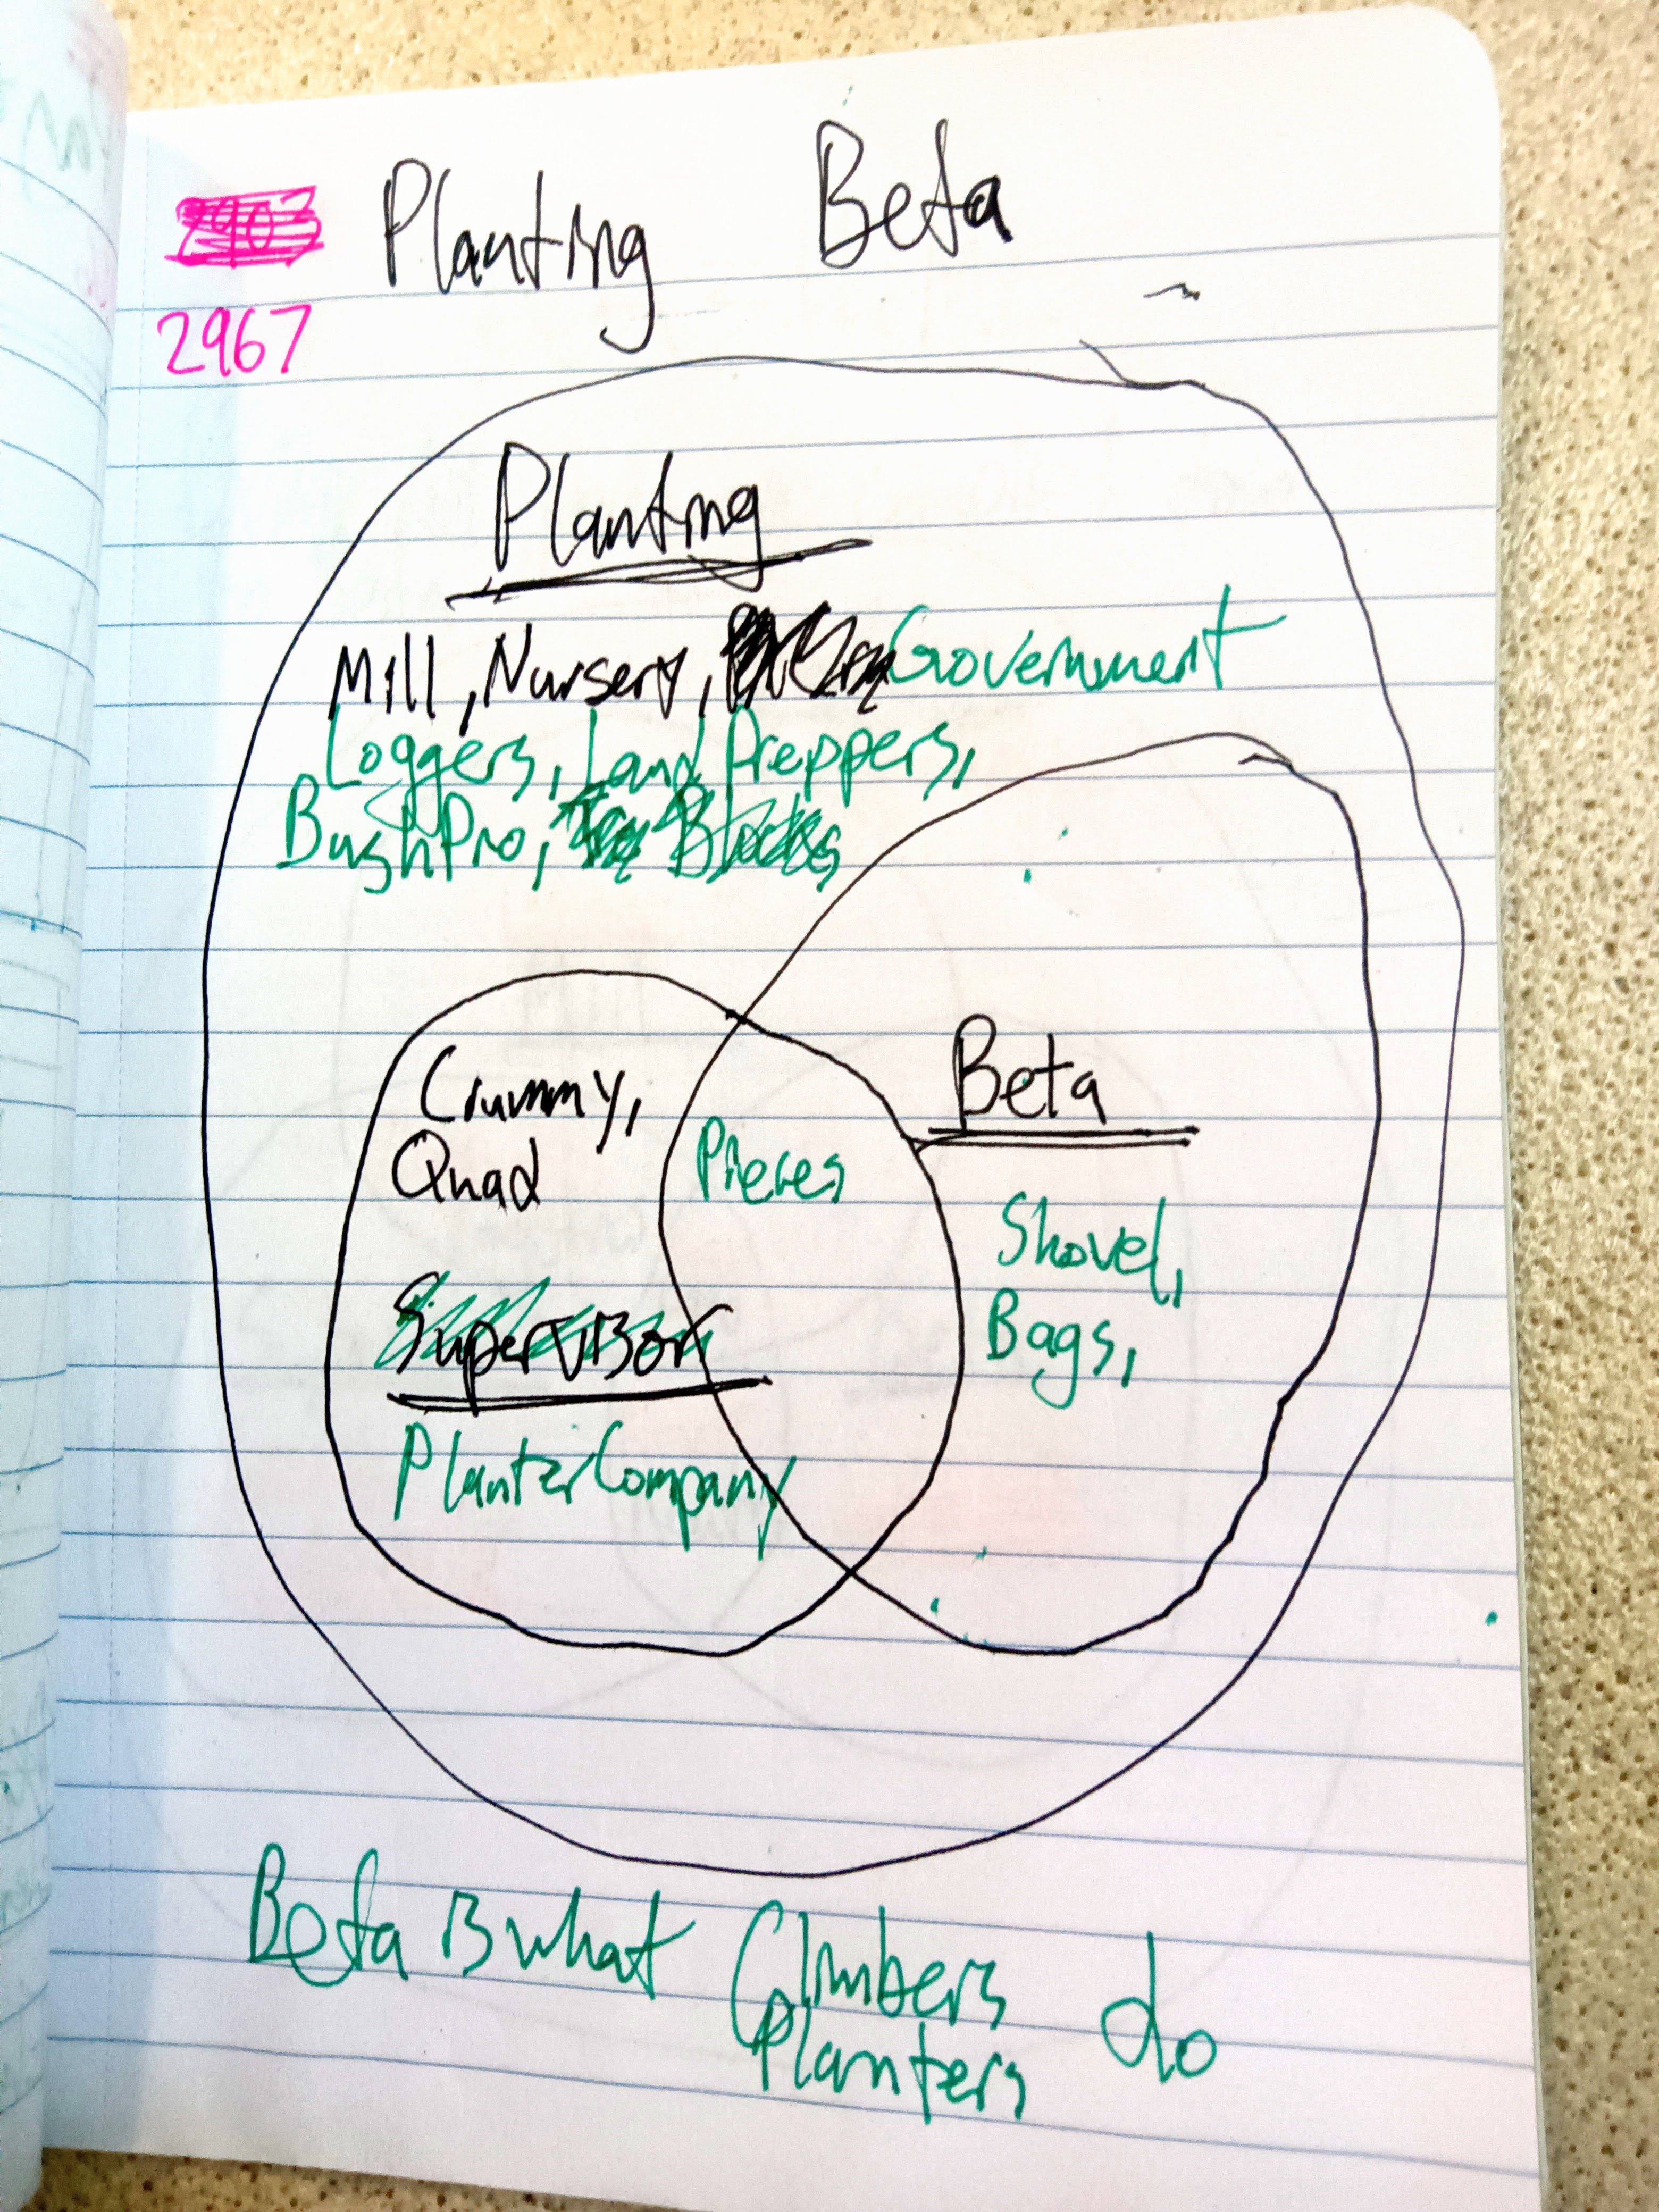 Planting Beta
2967
Planting
Mill, Nursery, Government
Loggers, Land Preppers,
BushPro,
Crummy,
Quad
Pieces
Beta
Shovel,
Bags,
Supervisor
Planter Company
Beta is what Climbers do
Planters